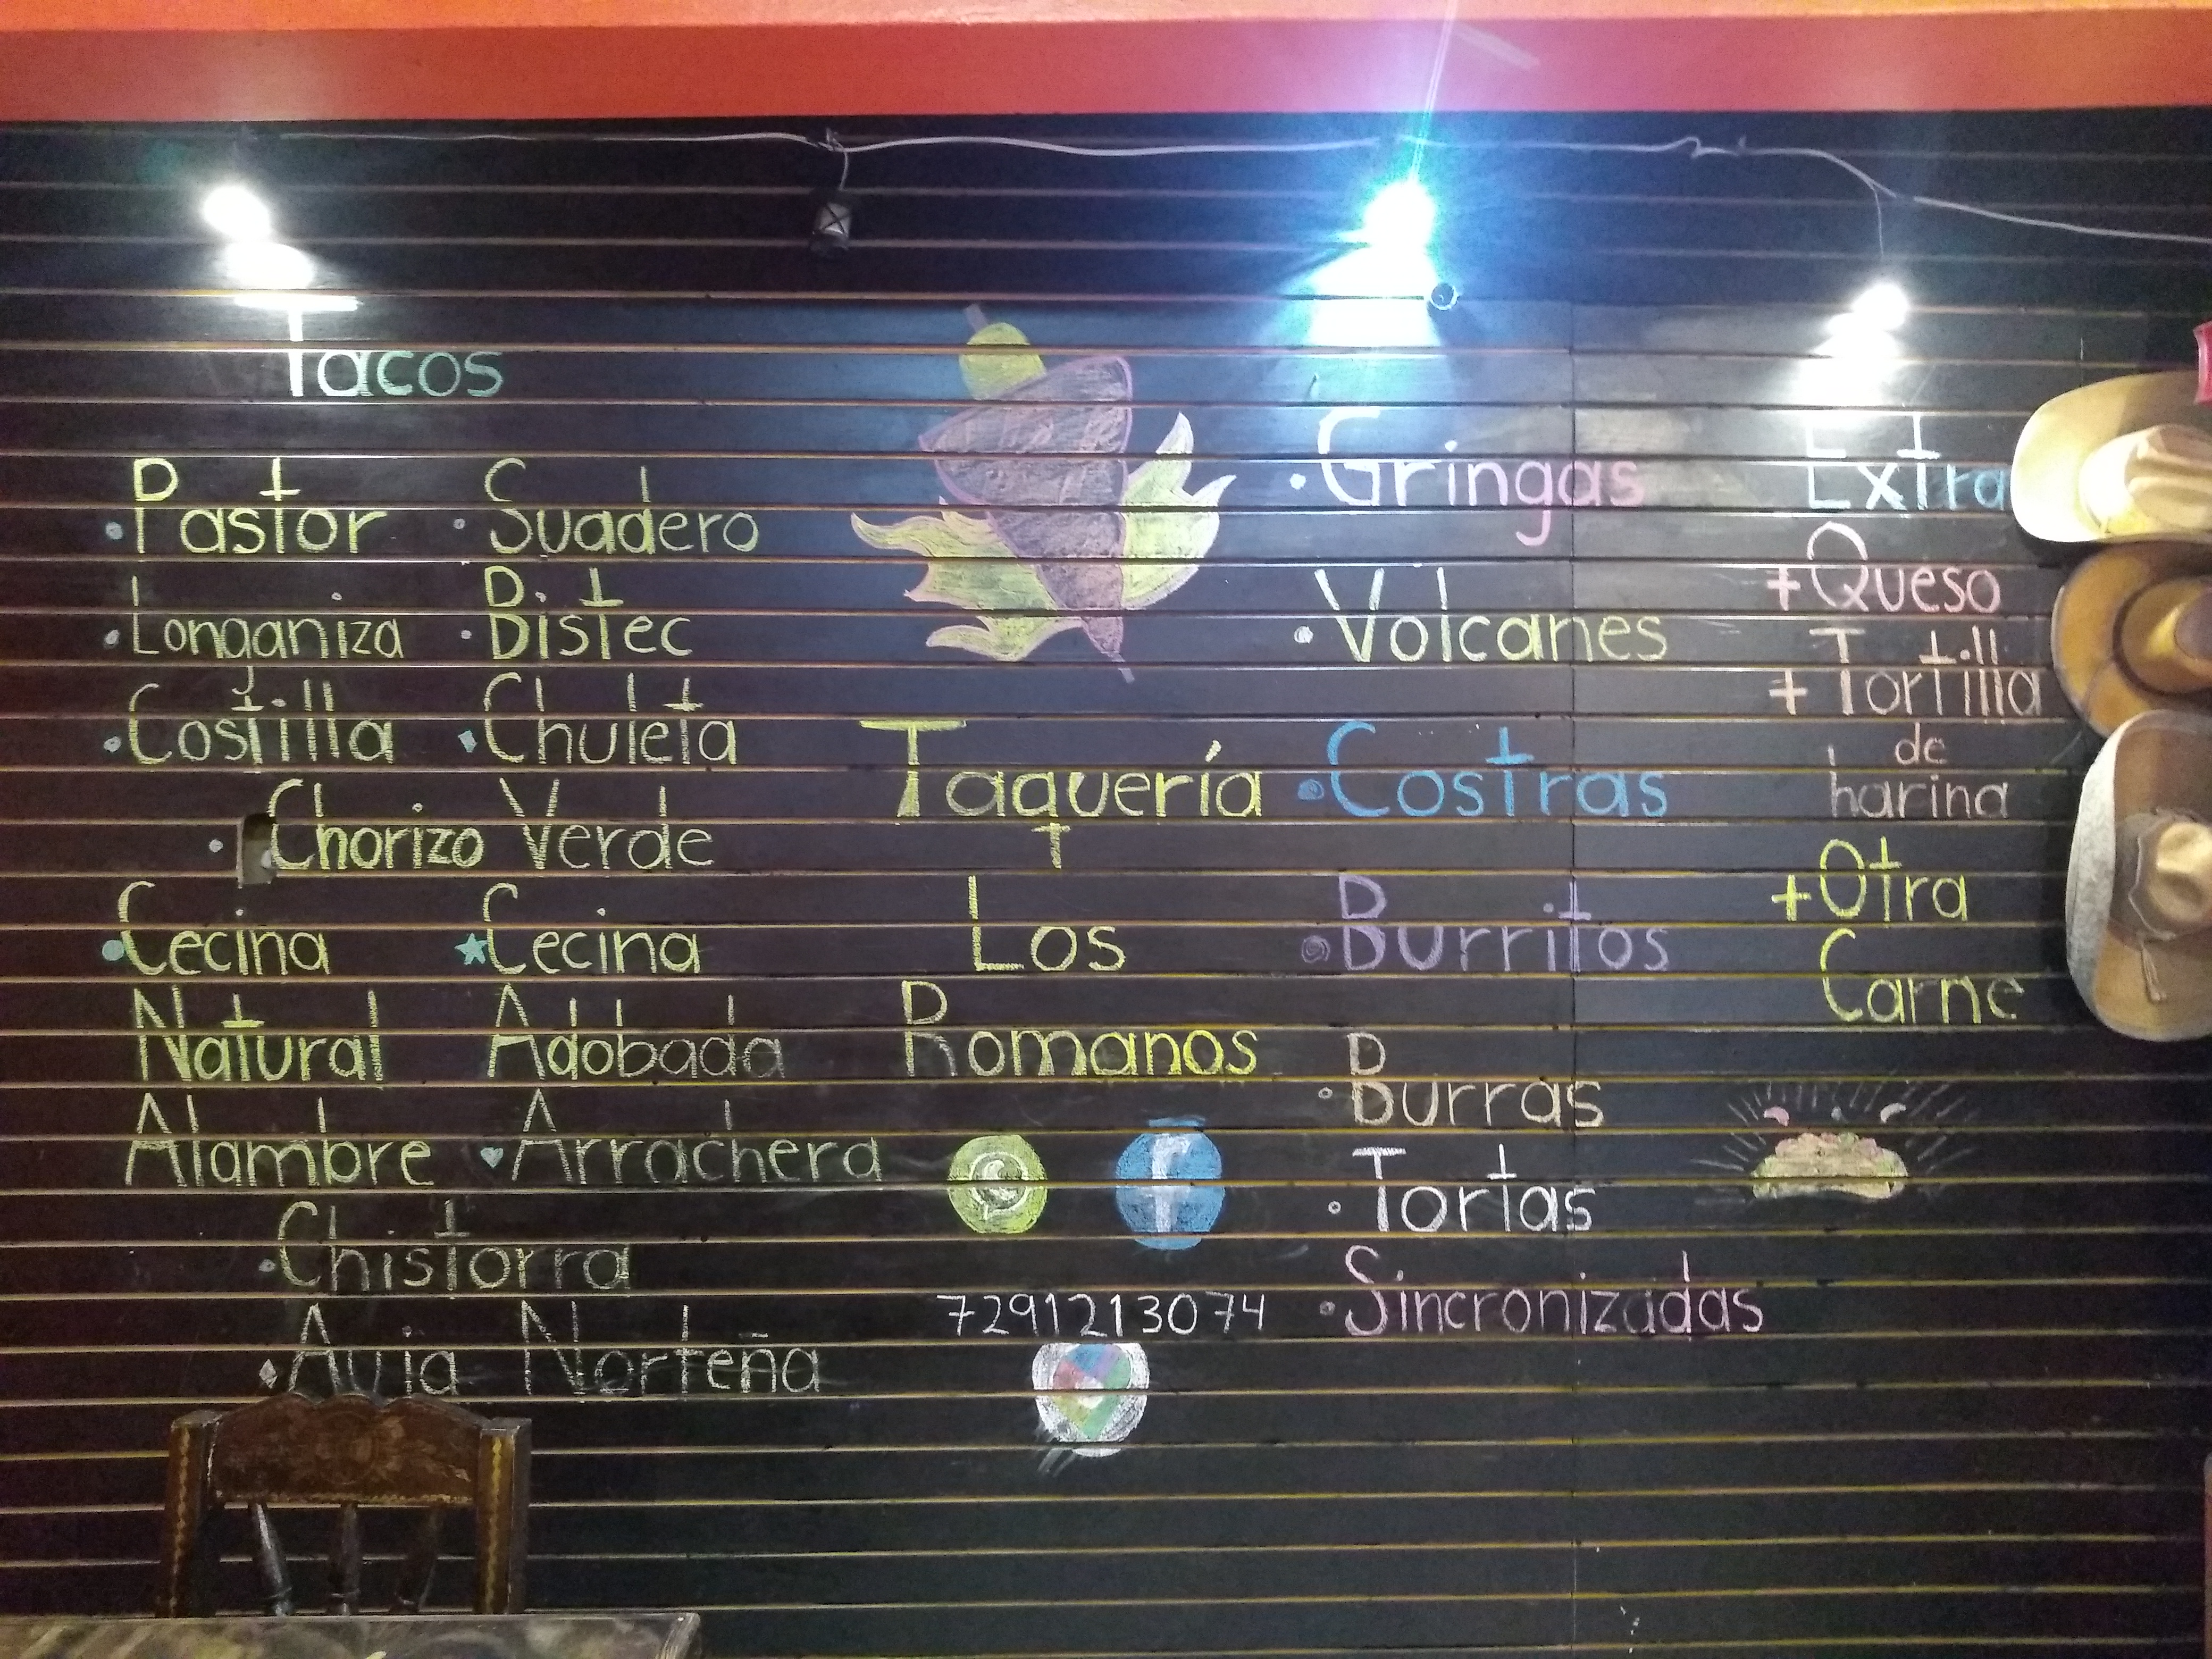 Tacos
Pastor
Suadero
Longaniza
Bistec
Costilla
Chuleta
Chorizo Verde
Cecina Natural
Cecina Adobada
Alambre
Arrachera
Chistorra
Auja Norteña
Taquería
Los
Romanos
f
7291213074
Gringas
Volcanes
Costras
Burritos
Burras
Tortas
Sincronizadas
Extra
+Queso
+Tortilla
de
harina
+Otra
Carne